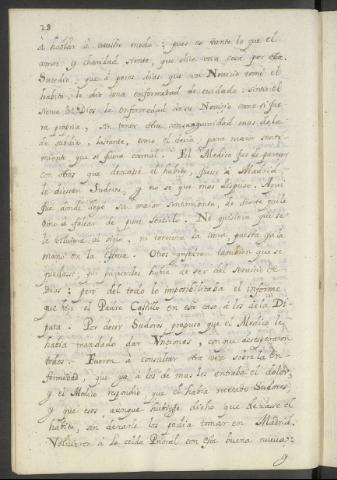 28
à hablar à nuestro modo: pues es tanto lo que el
amor y charidad siente, que dicta una cosa por otra.
Sucedio, que à pocos dias que un Novicio tomó el
habito, le dió una enfermedad de cuidado: sintió el
siervo de Dios la enfermedad de su Novicio como si fue-
ra propria, sin tener otra consanguinidad mas de la
de spiritu, bastante, como él decia, para mayor senti-
miento que si fuera carnal. El Medico fue de parecer
con otros que dexasse el habito, fuesse à Madrid,
le diessen Sudores, y no se que mas dixesse. Aqui
fue donde llegó su mayor sentimiento, de suerte que lle-
gó à faltar de puro sentirlo. No quisiera que se
le volviera al siglo, ni torciera la cara, puesta ya la
mano en la Esteva. Otros quisieran tambien que se
quedasse, por parecerles havia de ser del servicio de
Dios: pero del todo lo imposibilitaba el informe
que hizo el Padre Castillo en este caso à los de la Di-
puta. Por decir Sudores propuso que el Medico le
havia mandado dar Unciones, con que desesperaron
todos. Fueron à consultar otra vez sobre la en-
fermedad, que ya à los de mas les entraba el dolor,
y el Medico respondió que él havia recetado Sudores
y que esos aunque huviesse dicho que dexasse el
habito, sin dexarle los podia tomar en Madrid.
Volvieron à la celda Prioral con esta buena nueva:
y